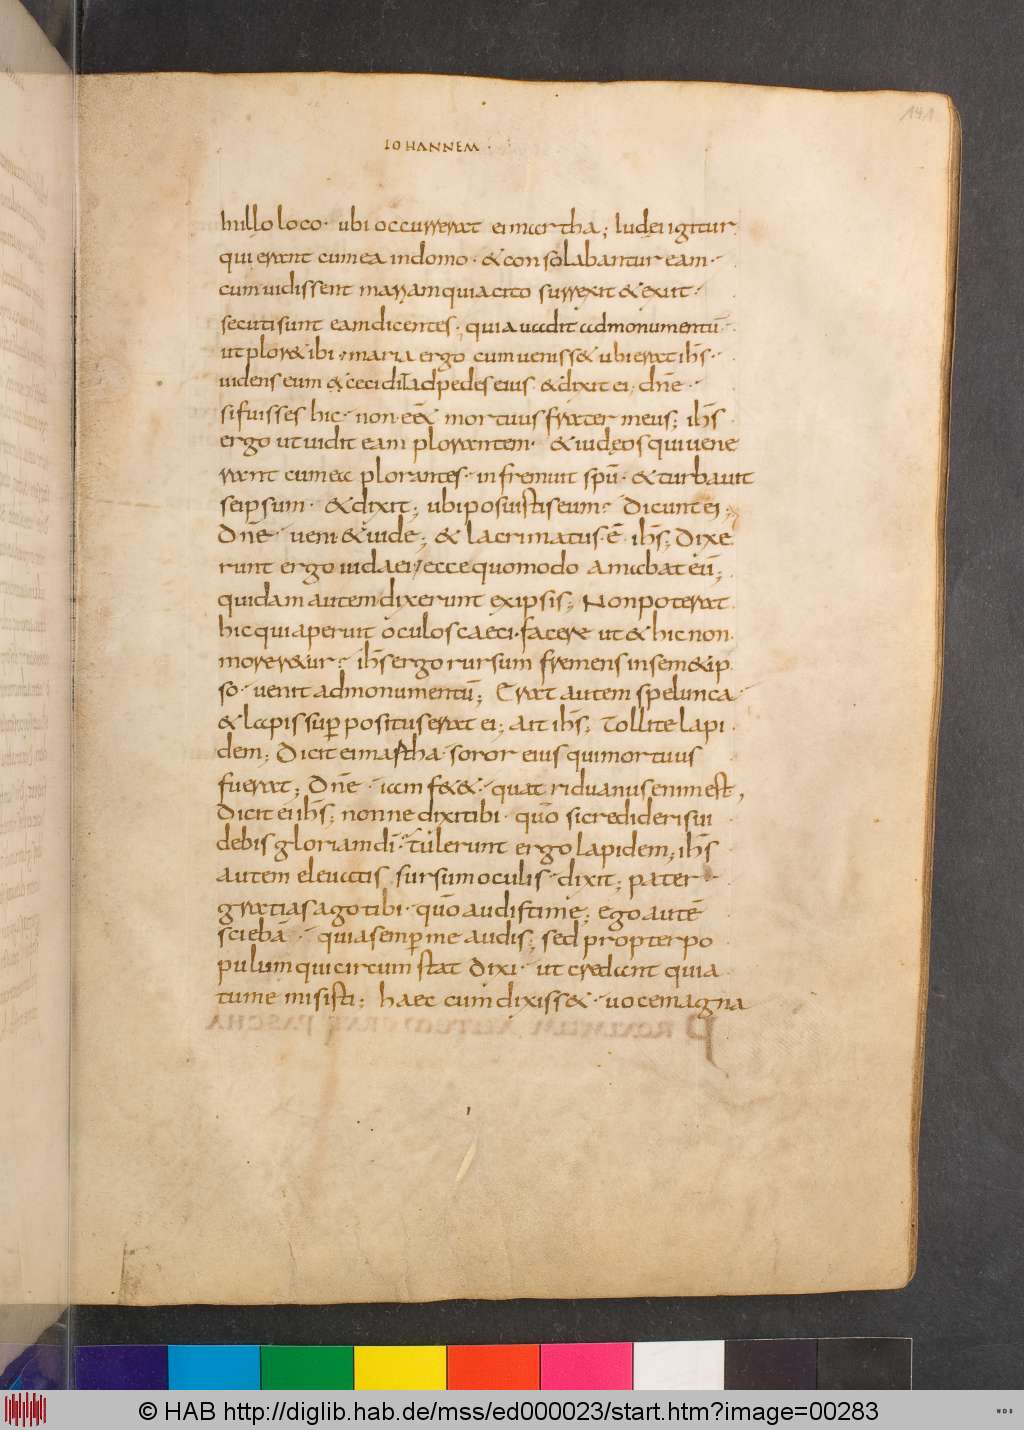 141
IOHANNEM ·
hillo loco · ubi occurrerat ei martha ; Iudęi igitur
qui erant cum ea in domo · & consolabantur eam ·
cum uidissent mariam quia cito surrexit & exiit ·
secuti sunt eam dicentes · quia uadit ad monumentū ·
ut plor& ibi · maria ergo cum ueniss& ubi erat ihs̄ ·
uidens eum & cecidit ad pedes eius · & dixit ei · dn̄e ·
si fuisses hic · non eē& mortuus frater meus ; ihs̄
ergo ut uidit eam plorantem · & iudęos qui uene
rant cum ea plorantes · infremuit spū · & turbauit
seipsum · & dixit ; ubi posuistis eum · Dicunt ei ;
Dn̄e · ueni & uide ; & lacrimatus · ē ihs̄ ; Dixe
runt ergo iudaei / ecce quomodo amabat eū ;
quidam autem dixerunt ex ipsis ; Non poterat
hic qui aperuit oculos caeci · facere ut & hic non
morer&ur · ihs̄ ergo rursum fremens in sem&ip
so · uenit ad monumentū ; Erat autem spelunca ·
& lapis sup̄ positus erat ei ; ait ihs̄ ; Tollite lapi
dem ; Dicit ei martha · soror eius qui mortuus
fuerat ; Dn̄e · iam f&& · quatriduanus enim est ,
Dicit ei ihs̄ ; nonne dixi tibi · quō si credideris ui
debis gloriam dī · Tulerunt ergo lapidem ; ihs̄
autem eleuatis sursum oculis · dixit ; pater ·
gratias ago tibi · quō audisti me ; ego autē
sciebā · quia semp̄ me audis ; sed propter po
pulum qui circum stat dixi · ut credant quia
tu me misisti ; haec cum dixiss& · uoce magna
© HAB http://diglib.hab.de/mss/ed000023/start.htm?image=00283